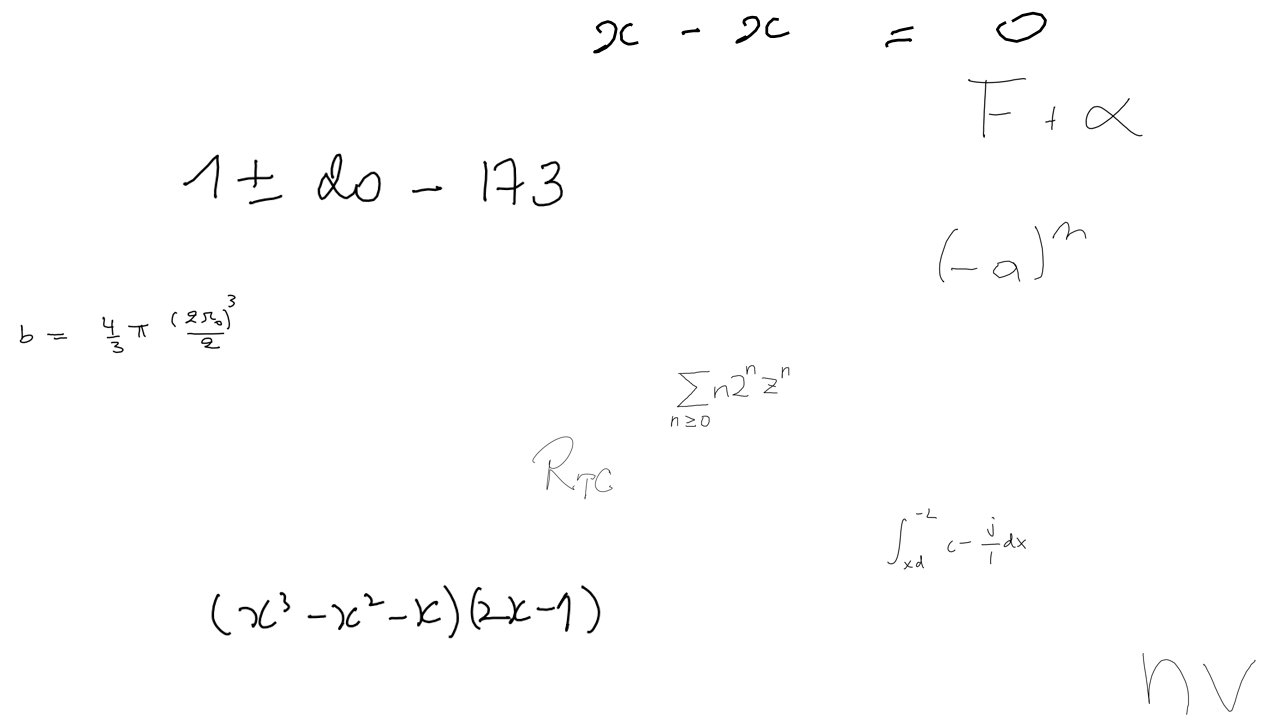 x - x = 0
F + α
1 ± 20 - 173
(-a)^n
b = \frac{4}{3} π \frac{(2r_0)^3}{2}
\sum_{n≥0} n2^n z^n
R_{TC}
\int_{xd}^{-L} c - \frac{j}{1} dx
(x^3 - x^2 - x)(2x - 1)
nv